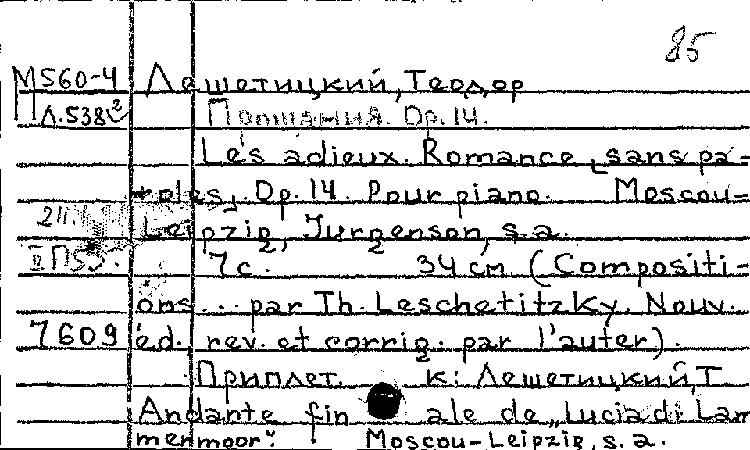 85
М560-4 Лешетицкий, Теодор
Пл.538 Прощания. Op.14.
Les adieux. Romance sans pa-
roles, Op.14. Pour piano. Moscou-
2н. Leipzig, Jurgenson, s.a.
7 с. 34 см (Compositi-
ons... par Th. Leschetitzky. Nouv.
7609 éd. rev. et corrig. par l'auter).
Приплет. к: Лешетицкий, Т.
Andante finale de „Lucia di Lam
mermoor". Moscou-Leipzig, s.a.